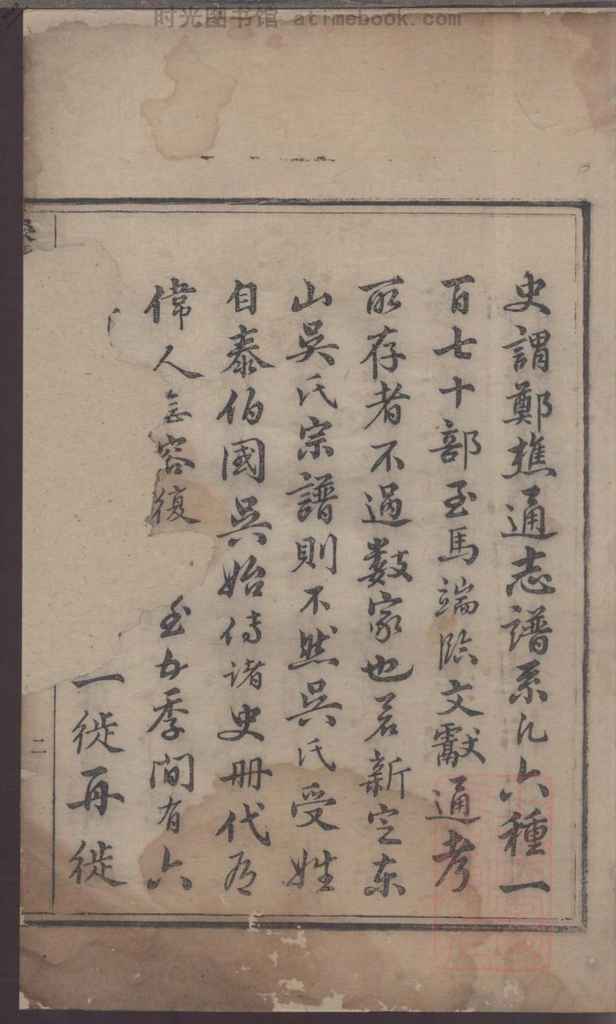 时光图书馆 atimebook.com
史謂鄭樵通志譜系凡六種一
百七十部至馬端臨文獻通考
所存者不過數家也若新定東
山吳氏宗譜則不然吳氏受姓
自泰伯國吳始傳諸史册代有
偉人無容復 至五季間有六
一徙再徙
二